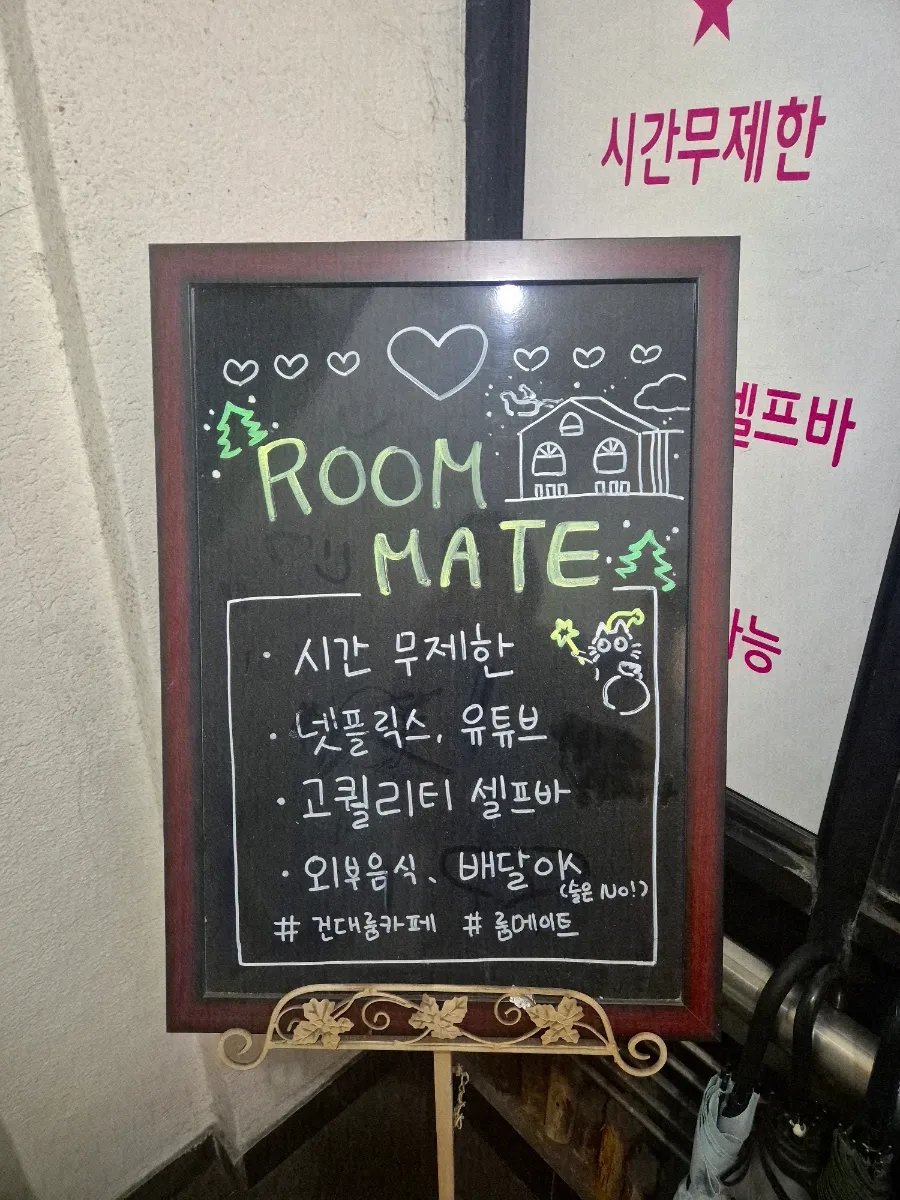 시간무제한
셀프바
ROOM
MATE
· 시간 무제한
· 넷플릭스, 유튜브
· 고퀄리티 셀프바
· 외부음식, 배달OK
(술은 NO!)
# 건대룸카페 # 룸메이트